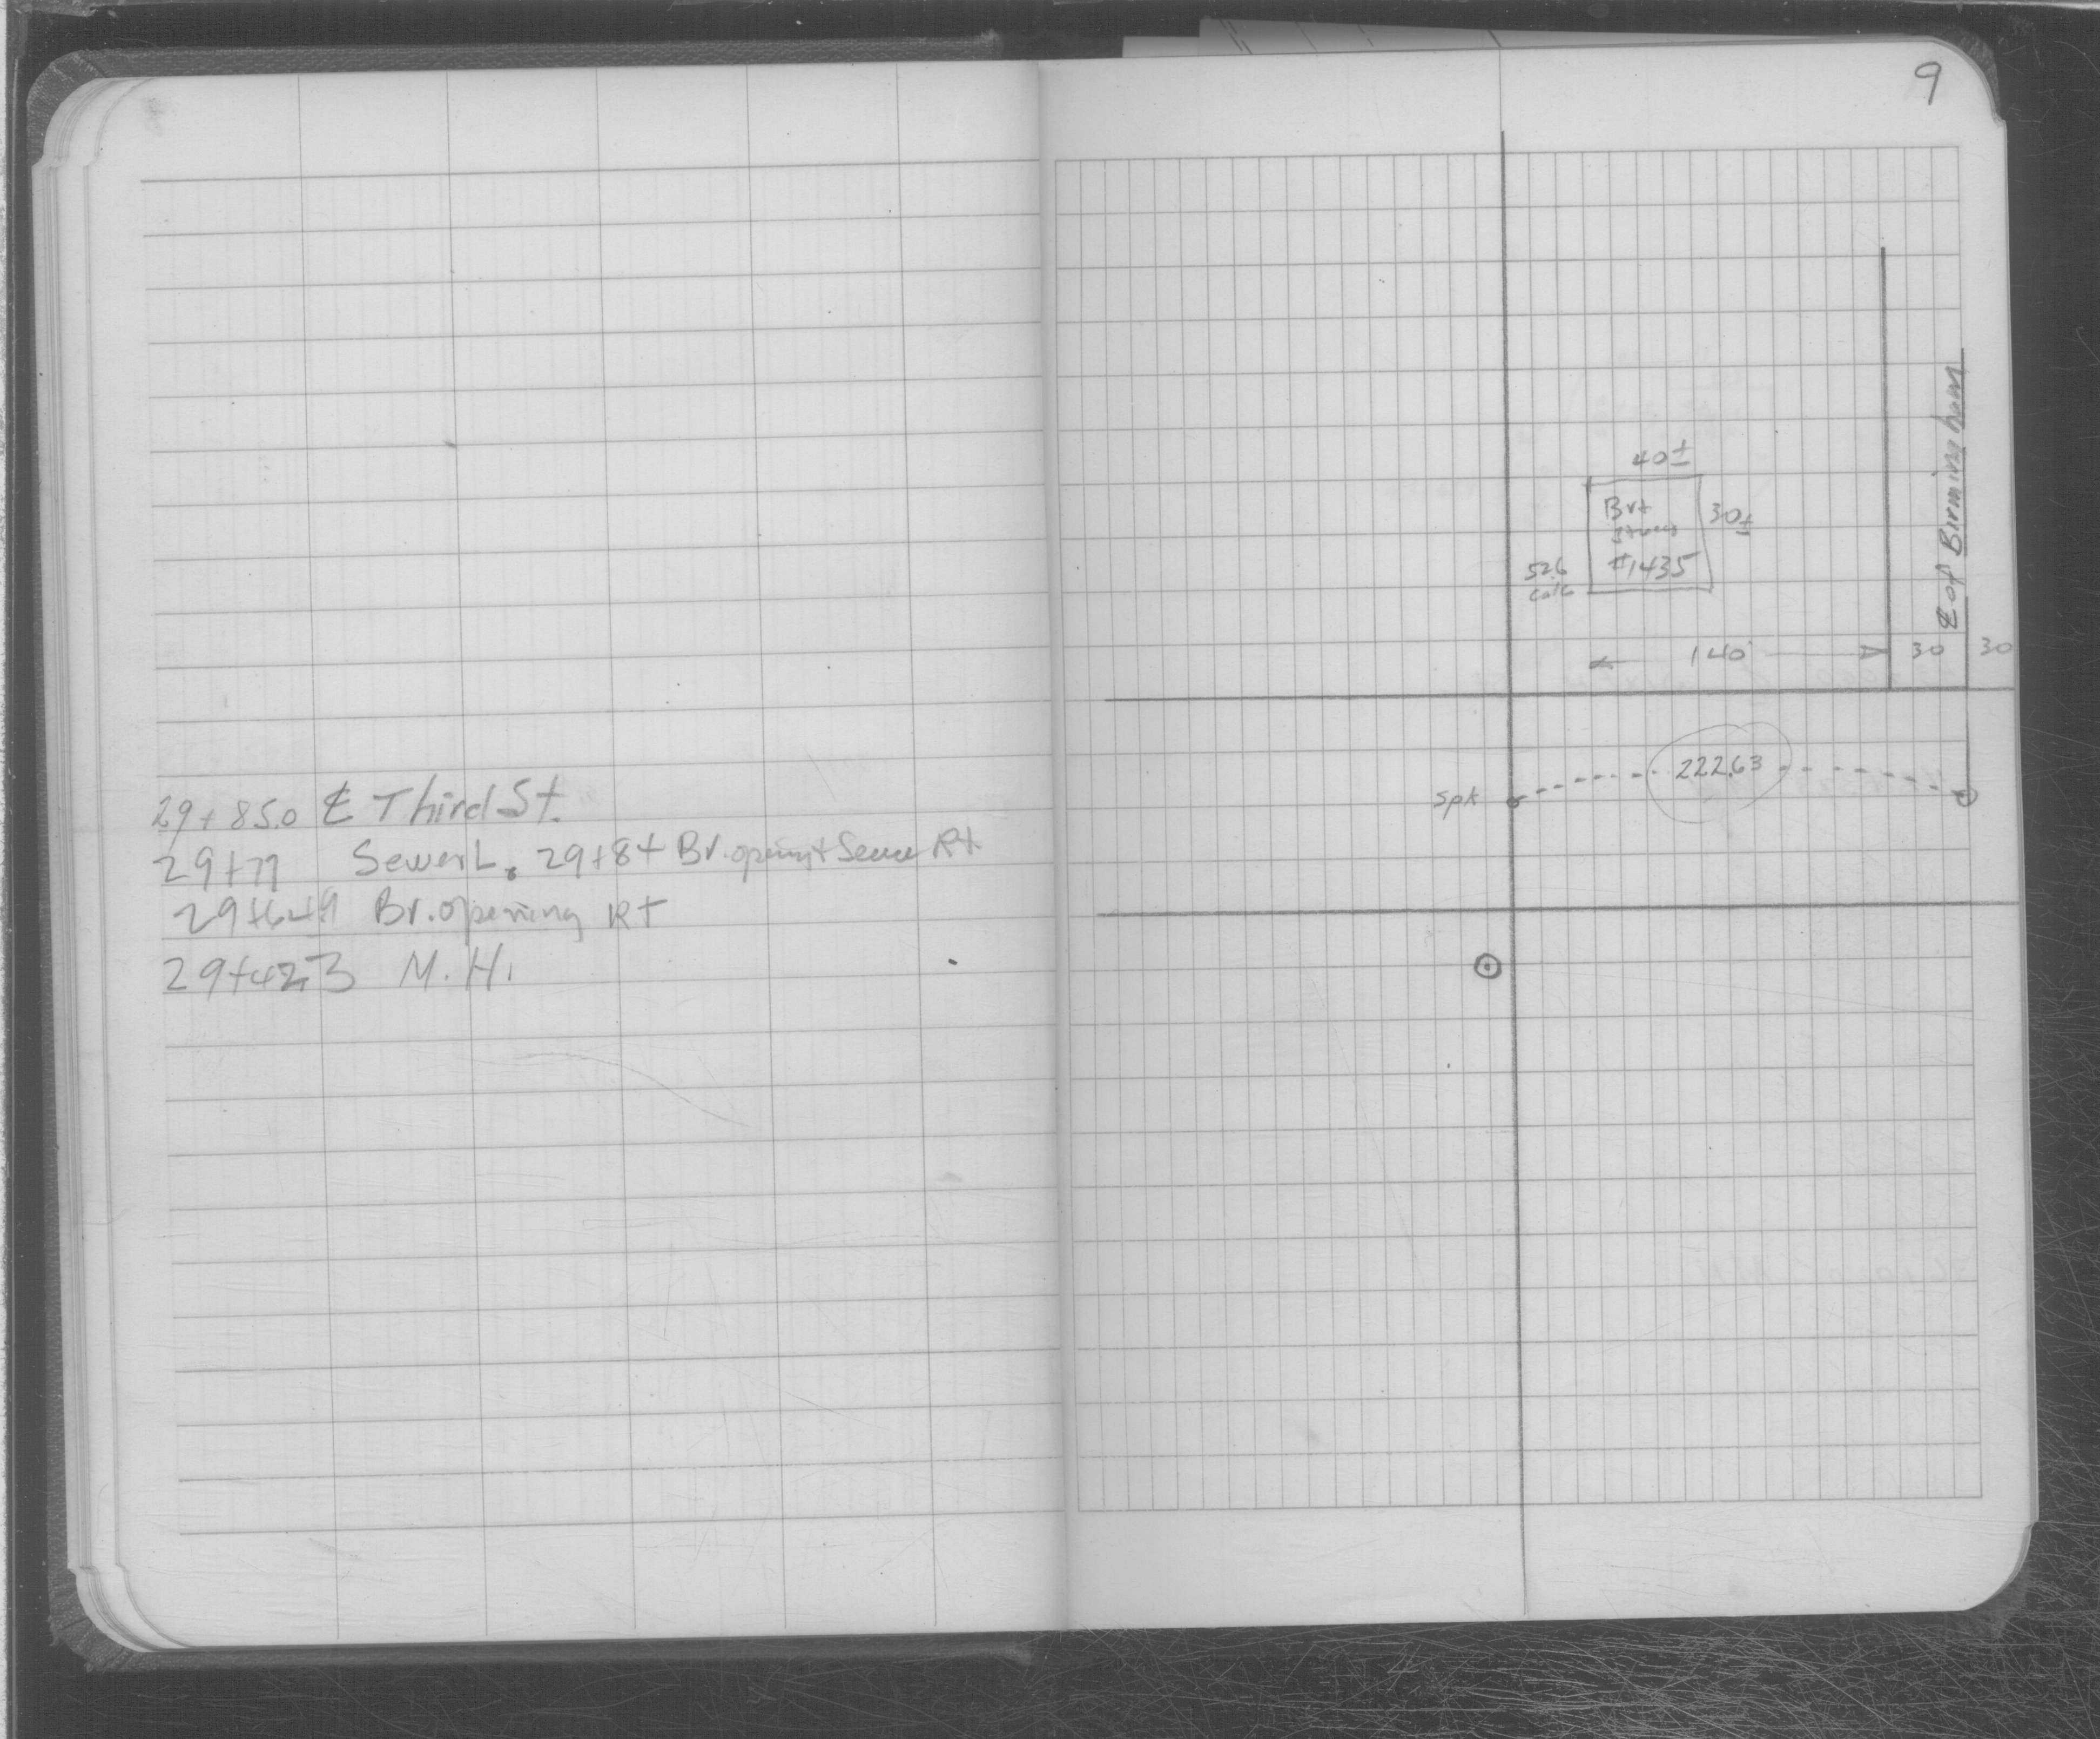 29+85.0 ℄ Third St.
29+77 Sewer L. 29+84 Br. opening + Sewer Rt
29+64.9 Br. opening Rt
29+42.3 M.H.
9
℄ of Birmingham
40±
Br +
30±
#1435
52.6
Calc
140
30
30
222.63
Spk